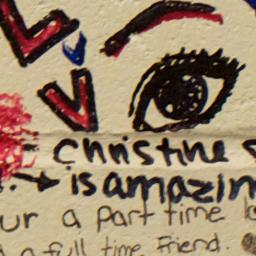 christine
is amazin
ur a part time
a full time Friend.